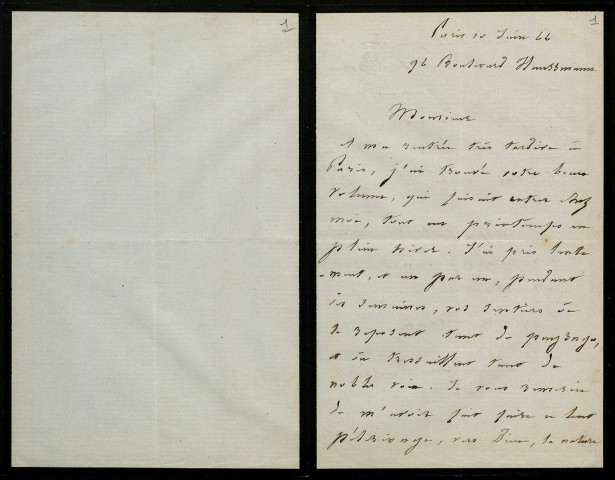 1
1
Paris 10 Juin 66
96 Boulevard Haussmann
Monsieur
A ma rentrée très tardive à
Paris, j'ai trouvé votre beau
volume, qui faisait entrer chez
moi, tout un printemps en
plein hiver. J'ai pris lente
-ment, et un par un, pendant
des semaines, vos sentiers où
se reposent tant de paysages,
et où tressaillent tant de
nobles voix. Je vous remercie
de m'avoir fait faire ce lent
pélerinage, vers Dieu, la nature